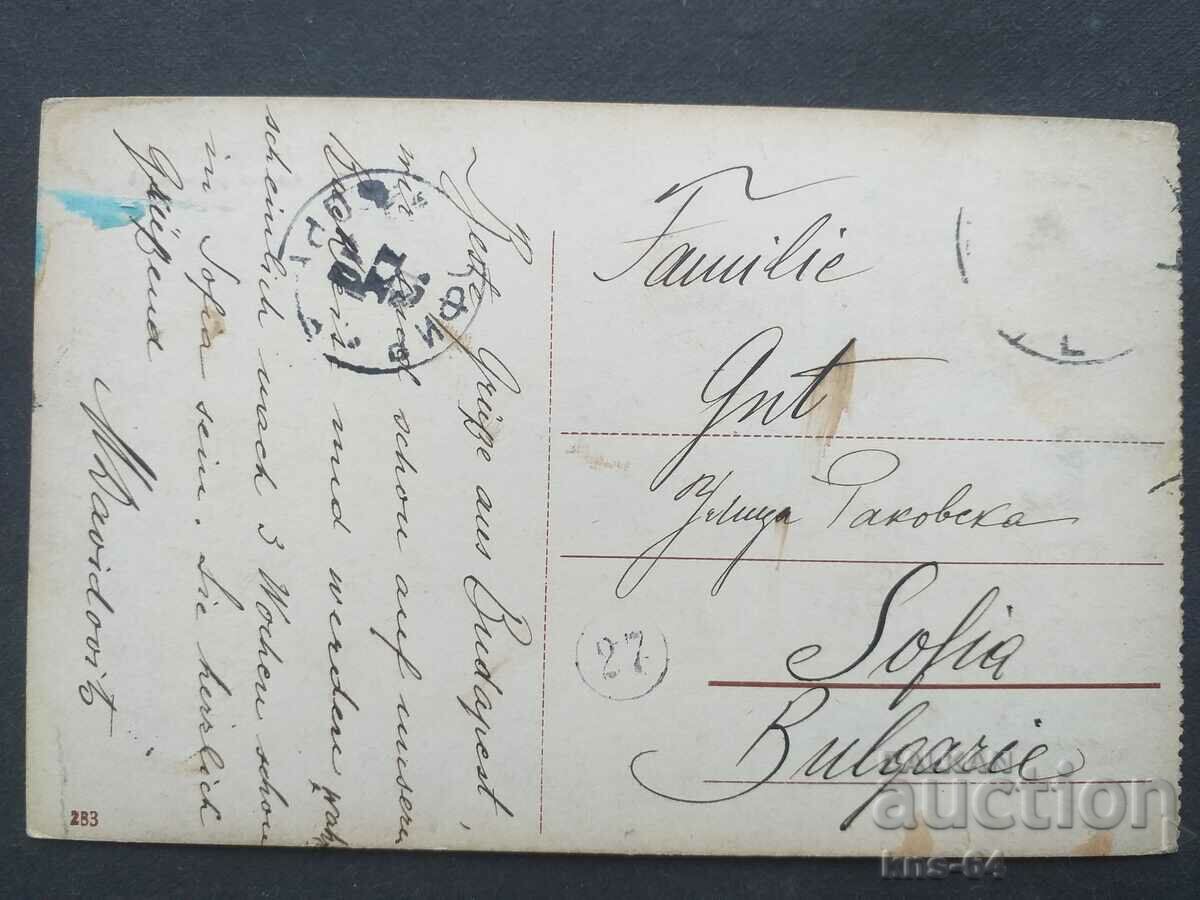 Beste Grüße aus Budapest,
wir sind schon auf unserer
und werden wahr
scheinlich nach 3 Wochen schon
in Sofia sein. Sie herzlich
Grüßend
MDavidovits
Familie
Gnt
Улица Раковска
Sofia
Bulgarie
27
2B3
auction
kns-64